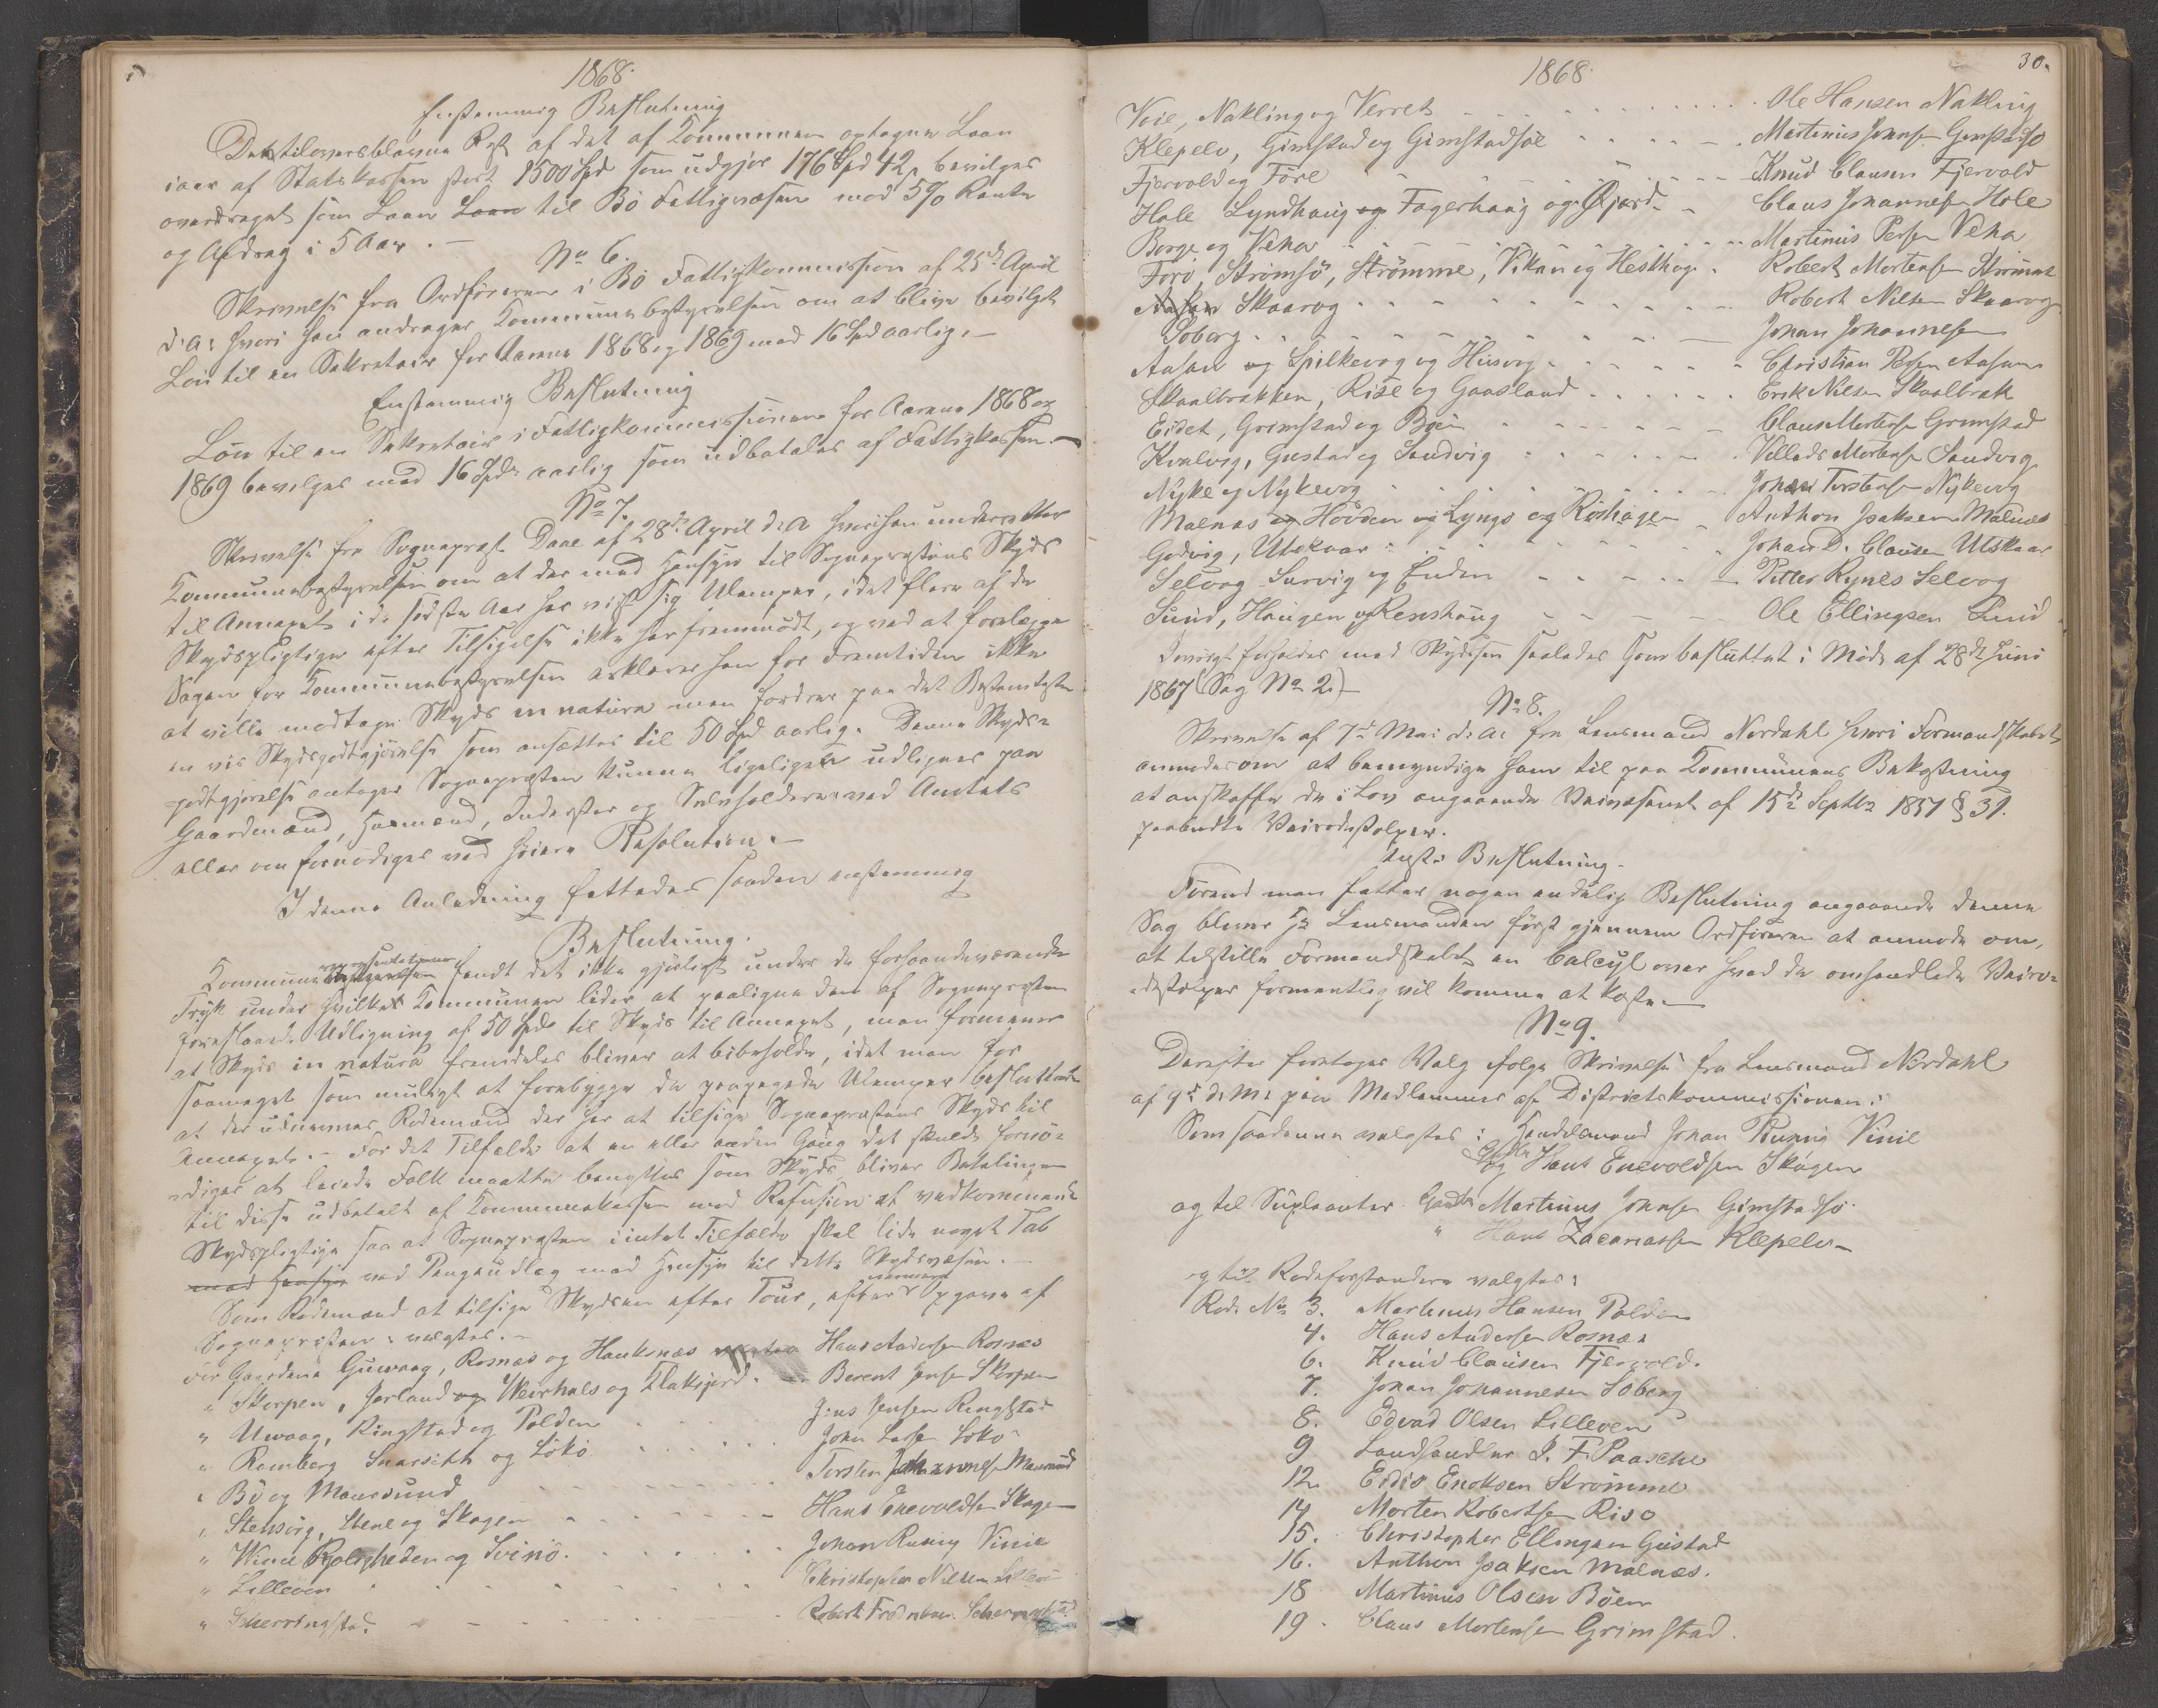 1868.
Enstemmig Beslutning
Det tiloversblevne Rest af det af Kommunen optagne Laan
iaar af Statskassen stort 1500 Spd som udgjør 176 Spd 42 s bevilges
overdraget som Laan Laan til Bø Fattigvæsen mod 5% Rente
og Afdrag i 5 Aar. —
No 6.
Skrivelse fra Ordføreren i Bø Fattigkommission af 25de April
d: a: hvori han andrager Kommunebestyrelsen om at blive bevilget
Løn til en Sekretair for Aarene 1868 og 1869 med 16 Spd aarlig. —
Enstemmig Beslutning
Løn til en Sekretair i Fattigkommissionen for Aarene 1868 og
1869 bevilges med 16 Spd aarlig som udbetales af Fattigkassen. —
No 7.
Skrivelse fra Sognepræst Daae af 28de April d: A hvori han underretter
Kommunebestyrelsen om at der med Hensyn til Sognepræstens Skyds
til Annexet i de sidste Aar har vist sig Ulemper, idet flere af de
Skydspligtige efter Tilsigelse ikke har fremmødt, og ved at forelægge
Sagen for Kommunebestyrelsen erklærer han for Fremtiden ikke
at ville modtage Skyds in natura men fordrer paa det Bestemteste
en vis Skydsgodtgjørelse som ansættes til 50 Spd aarlig. Denne Skyds-
godtgjørelse antager Sognepræsten kunne ligeligst udlignes paa
Gaardmænd, Husmænd, Inderster og Selvholdere ved Amtets
eller om fornødiges ved høiere Resolution. —
I denne Anledning fattedes saadan enstemmig
Beslutning.
repræsentationen
Kommunebestyrelsen fandt det ikke gjørligt under de forhaandenværende
Tryk under hvilket Kommunen lider at paaligne den af Sognepræsten
foreslaaede Udligning af 50 Spd til Skyds til Annexet, man formener
at Skyds in natura fremdeles bliver at bibeholde, idet man for
saameget som muligt at forebygge de paapegede Ulemper beslutter
at der udnævnes Rodemænd der har at tilsige Sognepræstens Skyds til
Annexet. — For det Tilfælde at en eller anden Gang det skulde fornø-
diges at leiede Folk maatte benyttes som Skyds, bliver Betalingen
til disse udbetalt af Kommunekassen mod Refusion af vedkommende
Skydspligtige saa at Sognepræsten i intet Tilfælde skal lide noget Tab
med Hensyn ved Pengeudlæg med Hensyn til dette Skydsvæsen. —
Som Rodemænd at tilsige Skydsen efter Tour, efter nærmere Opgave af
Sognepræsten valgtes. —
for Gaardene Guvaag, Rosnæs og Hauknæs Hans Andersen Rosnæs
" Skorpen, Jorland og Veirhals og Klaksjord. Berent Jensen Skorpen
" Uvaag, Ringstad og Polden Jens Jensen Ringstad
" Ramberg Snarseth og Løkø John Larsen Løkø
" Bø og Maursund Torsten Johannesen Maursund
" Stensørg, Stene og Skagen Hans Enevoldsen Skagen
" Vinie Roligheden og Svinø. Johan Runig Vinie
" Lilleeen Christopher Nilsen Lilleen
" Scherringstad Robert Fredriksen Scherringstad
30.
1868.
Voie, Nakling og Verret Ole Hansen Nakling
Klepelv, Gimstad og Gimstadsøl Martinus Johnsen Gimstadsø
Fjervold og Føre Knud Clausen Fjervold
Hole Lyndhaug og Fagerhaug og Øjord Claus Johannesen Hole
Borge og Vena Martinus Persen Vena
Forø, Strømsø, Strømme, Vikan og Hesthag. Robert Mortensen Strømme
Aasan Skaarvog Robert Nilsen Skaarvog
Søberg Johan Johannesen
Aasan og Spilkevog og Husvog Christian Persen Aasan
Skaalbrækken, Risø og Gaasland Erik Nilsen Skaalbræk
Eidet, Grimstad og Bøen Claus Mortensen Grimstad
Kvalvig, Gustad og Sandvig Villads Mortensen Sandvig
Nyke og Nykevog Johan Torstensen Nykevog
Malnæs og Høvden og Lyngø og Røshagen Anthon Isaksen Malnæs
Godvig, Utskaar Johan D. Clausen Utskaar
Selvog Survig og Enden Petter Rynes Selvog
Sund, Haugen og Renshaug Ole Ellingsen Sund
Iøvrigt forholdes med Skydsen saaledes som besluttet i Møde af 28de Juni
1867 (Sag No 2.) —
No 8.
Skrivelse af 7de Mai d: A: fra Lensmand Nordahl hvori Formandskabet
anmodes om at bemyndige ham til paa Kommunens Bekostning
at anskaffe de i Lov angaaende Veivæsenet af 15de Septbr 1851 § 31.
paabudte Veirodestolper.
Enst: Beslutning.
Førend man fatter nogen endelig Beslutning angaaende denne
Sag bliver Hr Lensmanden først gjennem Ordføreren at anmode om,
at tilstille Formandskabet en Calcyl over hvad de omhandlede Veiro-
destolper formentlig vil komme at koste. —
No 9.
Derefter foretoges Valg ifølge Skrivelse fra Lensmand Nordahl
af 9de d: M: paa Medlemmer af Distriktskommissionen:
Som saadanne valgtes: Handelsmand Johan Runig Vinie
og Hans Enevoldsen Skagen
og til Supleanter Gaardbr Martinus Johnsen Gimstadsø.
" Hans Zacariassen Klepelv —
og til Rodeforstandere valgtes:
Rode No 3. Martinus Hansen Polden
4. Hans Andersen Rosnæs
6. Knud Clausen Fjervold.
7. Johan Johannesen Søberg
8. Edvad Olsen Lilleeen
9 Landhandler I. F. Paasche
12. Eidis Enoksen Strømme
14 Morten Robertsen Risø
15. Christopher Ellingsen Gustad
16. Anthon Isaksen Malnæs.
18 Martinus Olsen Bøen
19. Claus Mortensen Grimstad.